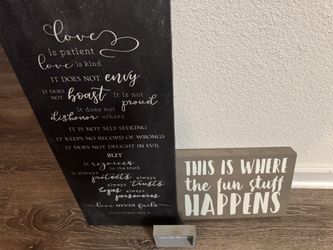 love
is patient
love is kind
IT DOES NOT envy
IT DOES NOT boast it is not proud
it does not
dishonor others
IT IS NOT SELF-SEEKING
IT KEEPS NO RECORD OF WRONGS
IT DOES NOT DELIGHT IN EVIL
BUT
it rejoices
in the truth
it always protects always
always trusts
hopes always
perseveres
love NEVER fails
THIS IS WHERE
the fun stuff
HAPPENS